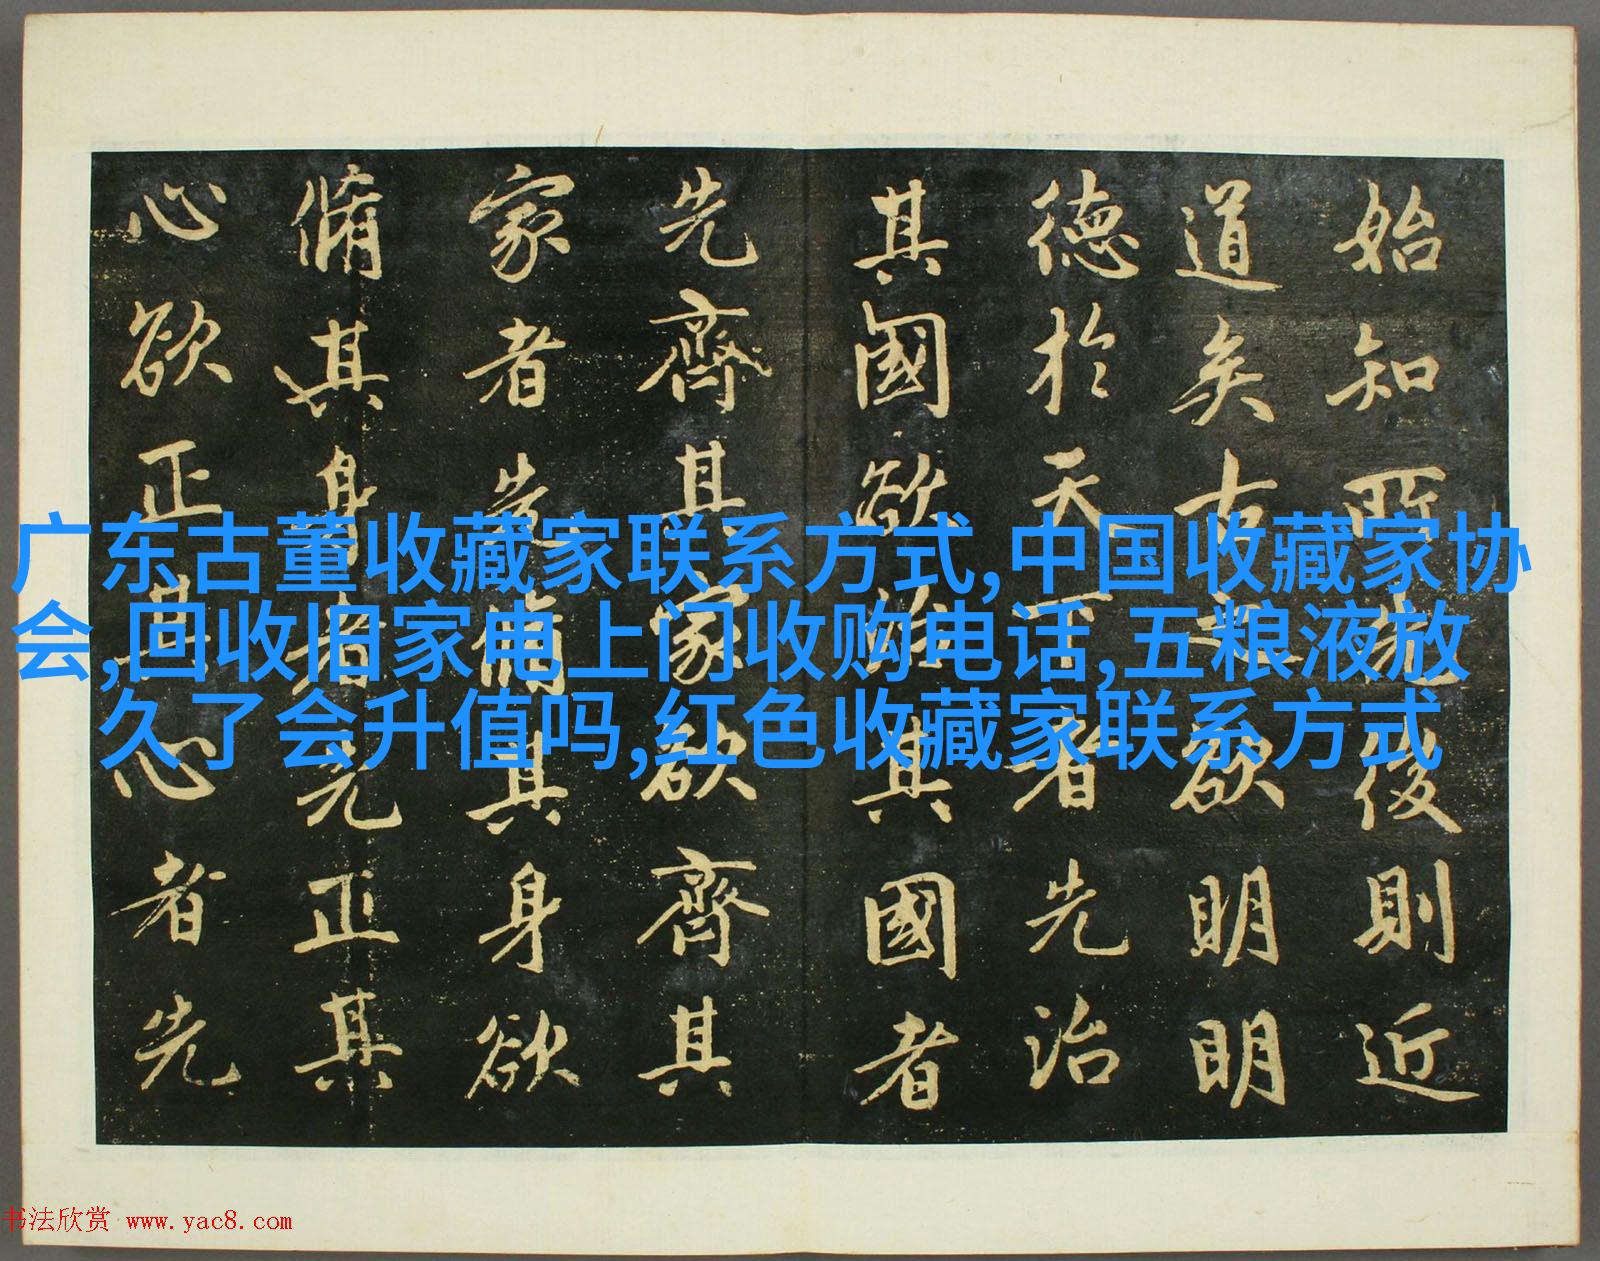 始知所先後則近
道矣古之欲明明
德於天下者先治
其國欲治其國者
先齊其家欲齊其
家者先脩其身欲
脩其身者先正其
心欲正其心者先
广东古董收藏家联系方式,中国收藏家协
会,回收旧家电上门收购电话,五粮液放
久了会升值吗,红色收藏家联系方式
书法欣赏 www.yac8.com